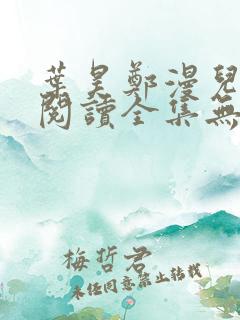 葉昊鄭漫兒
閱讀全集無
梅哲君
未經同意禁止轉載